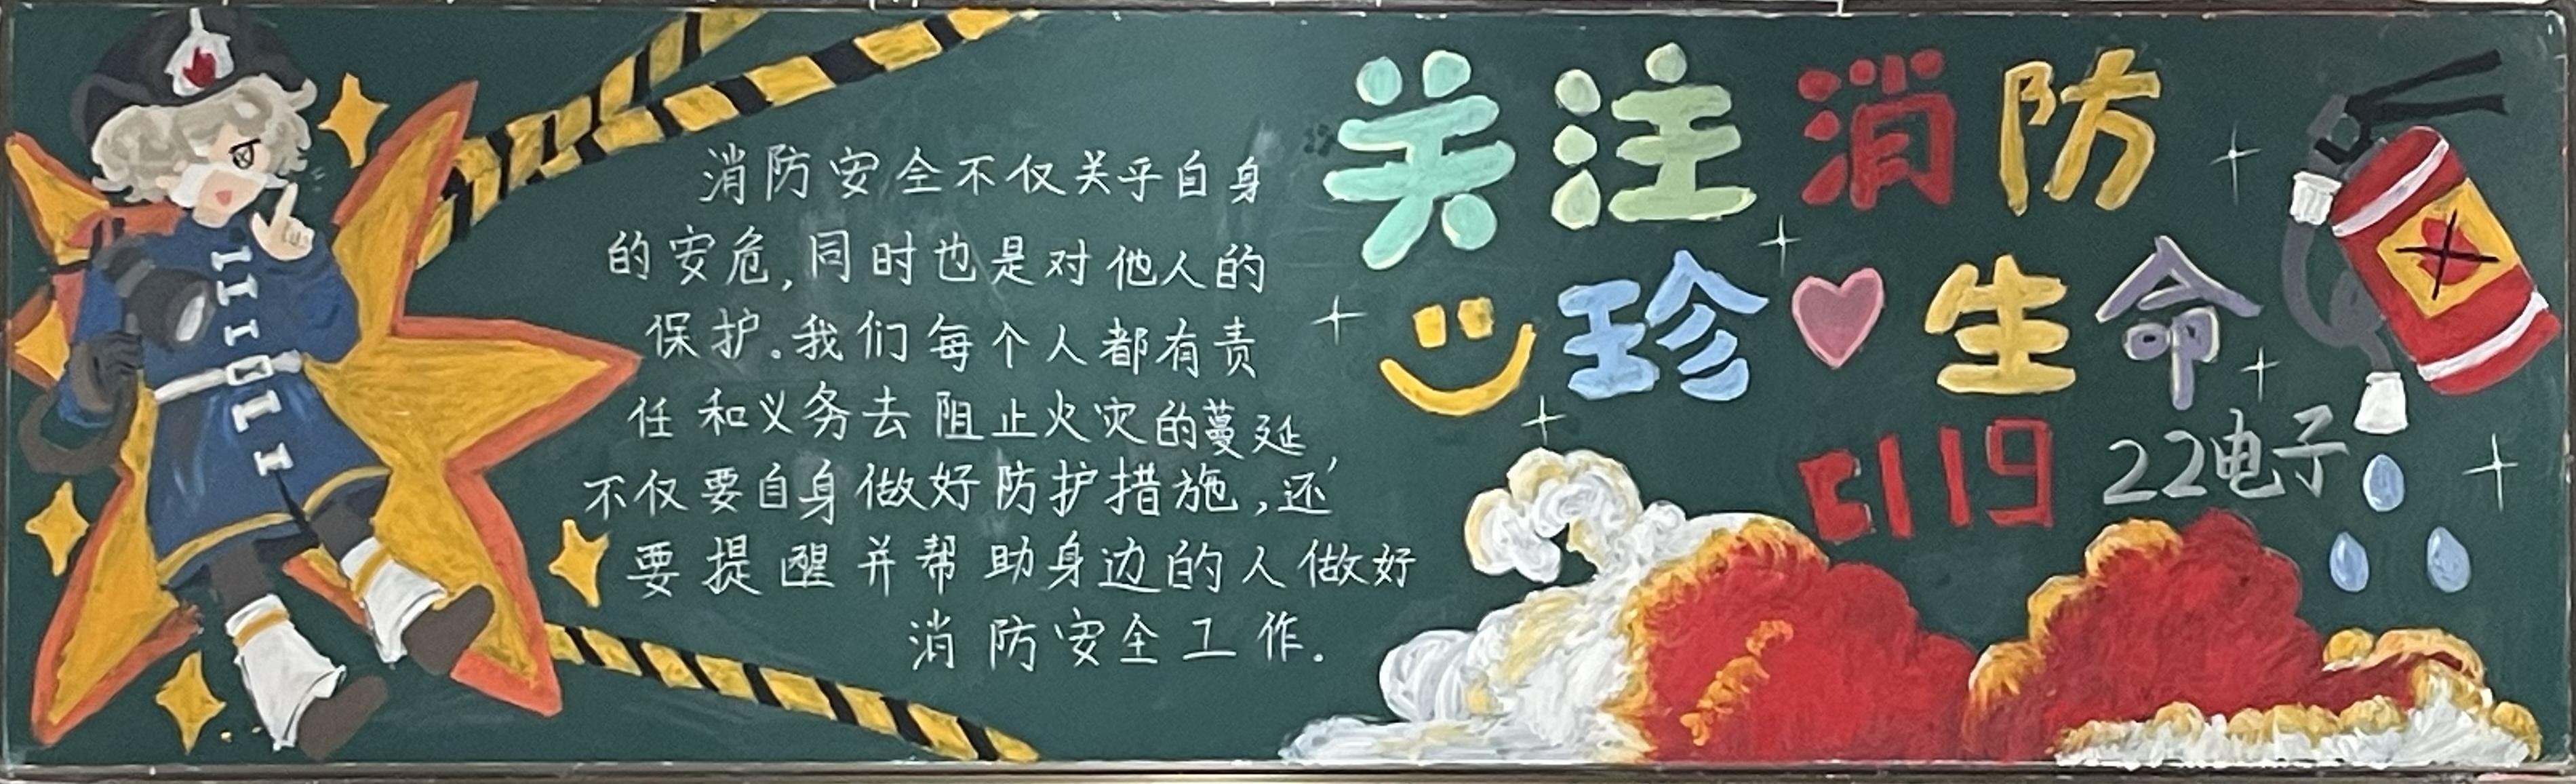 消防安全不仅关乎自身
的安危,同时也是对他人的
保护。我们每个人都有责
任和义务去阻止火灾的蔓延,
不仅要自身做好防护措施,还
要提醒并帮助身边的人做好
消防安全工作.
关注消防
珍生命
119
22电子